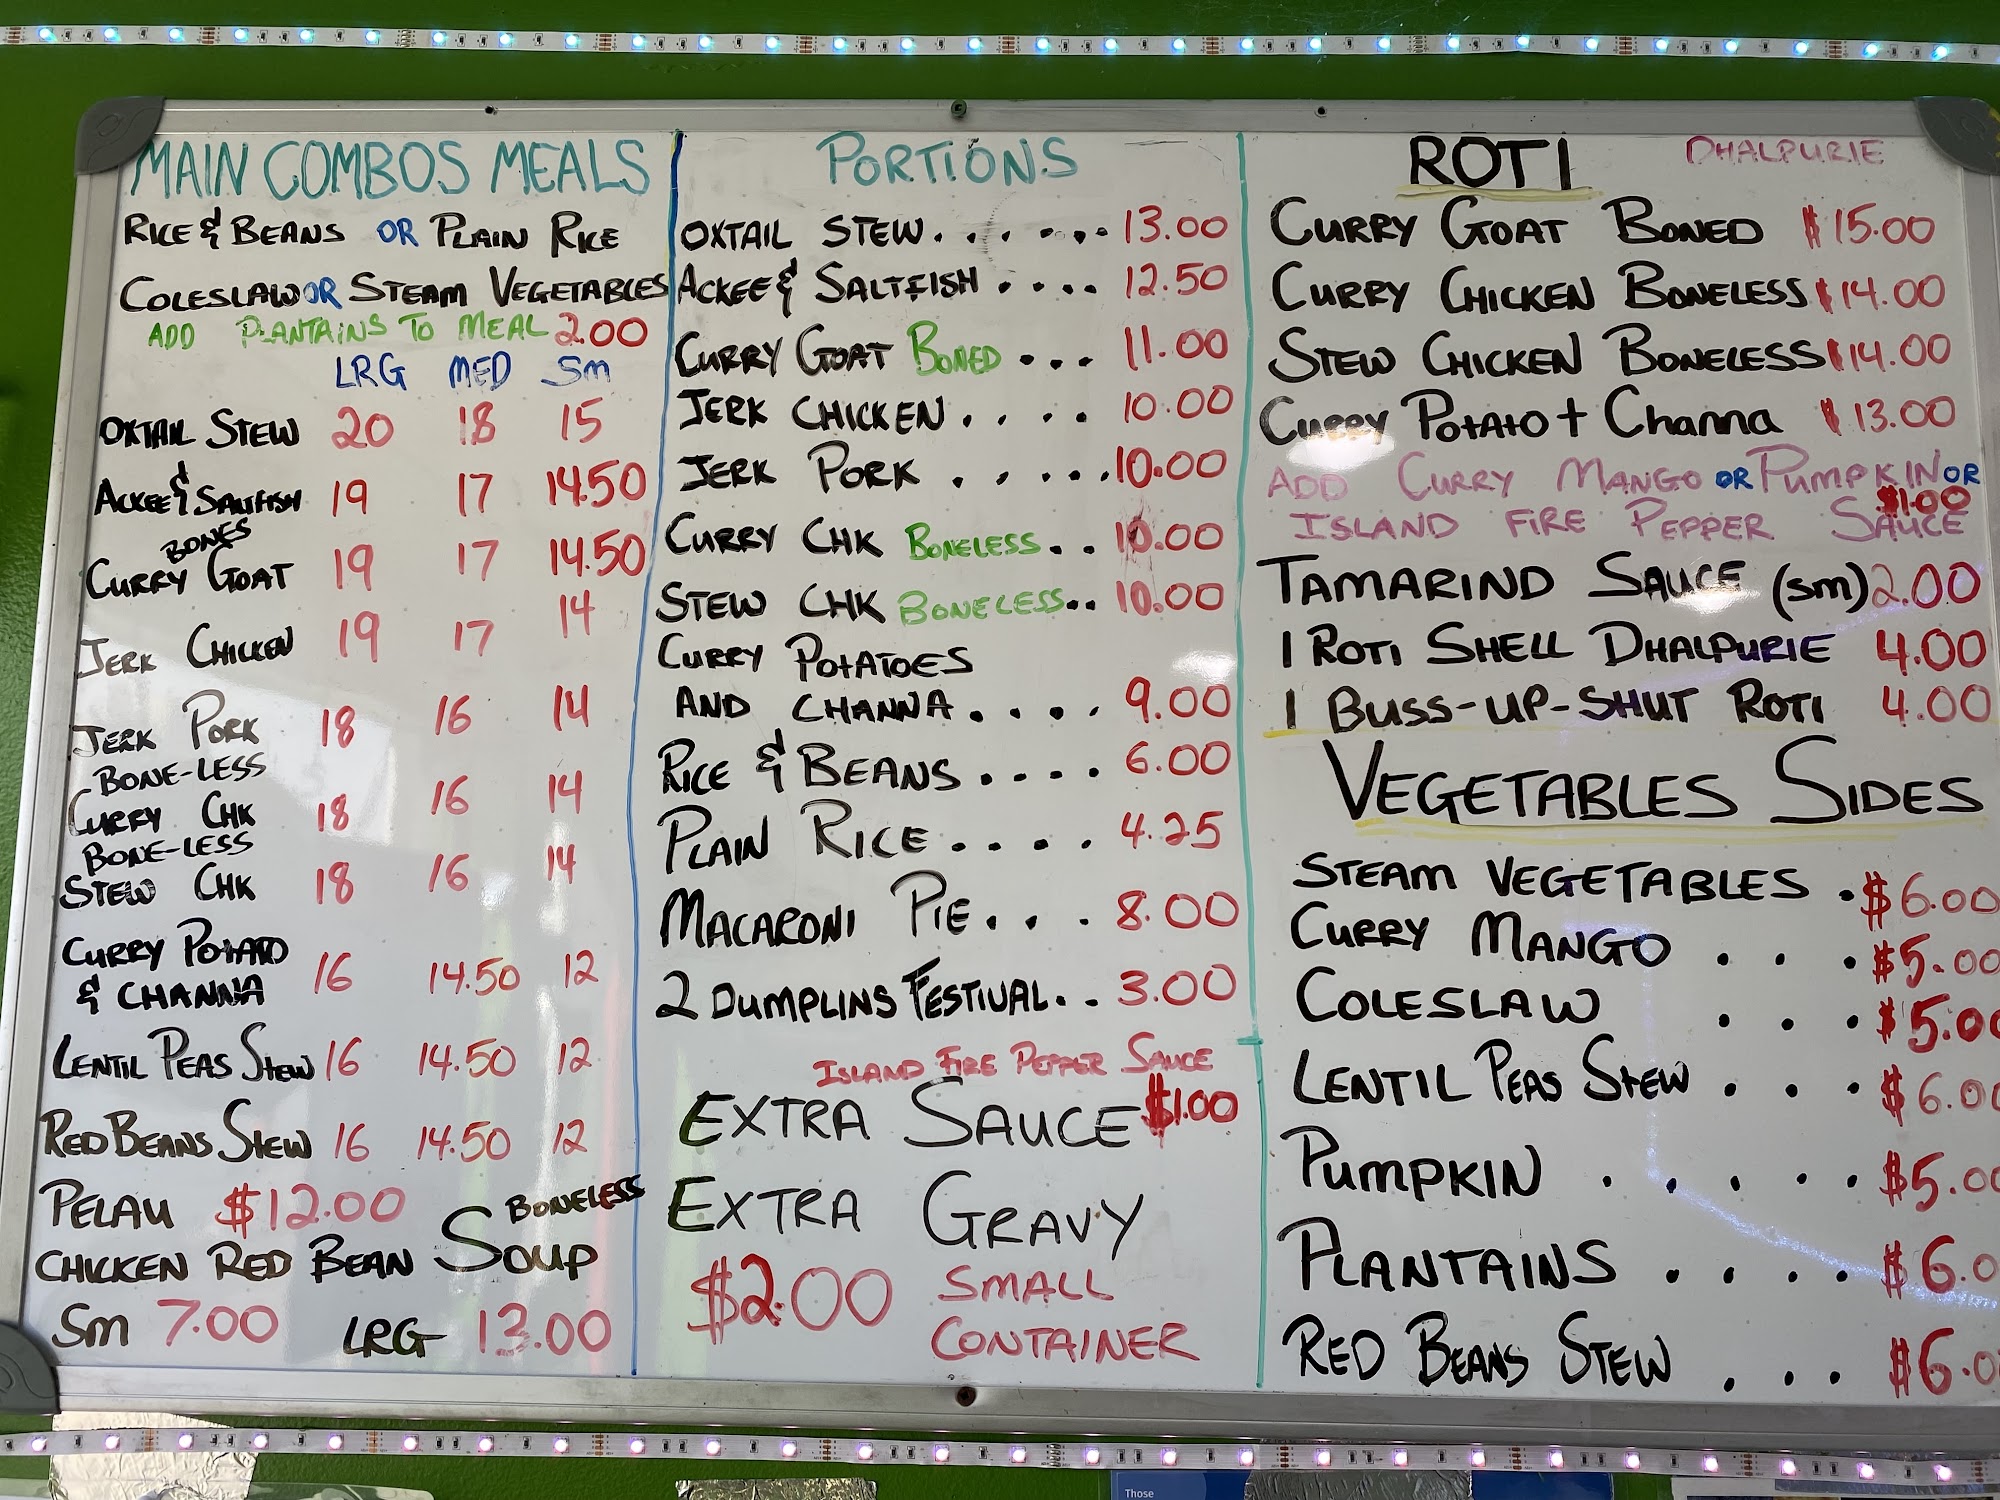 MAIN COMBOS MEALS
RICE & BEANS OR PLAIN RICE
COLESLAW OR STEAM VEGETABLES
ADD PLANTAINS TO MEAL 2.00
LRG MED Sm
OXTAIL STEW 20 18 15
ACKEE & SALTFISH 19 17 14.50
BONES
CURRY GOAT 19 17 14.50
JERK CHICKEN 19 17 14
JERK PORK 18 16 14
BONE-LESS
CURRY CHK 18 16 14
BONE-LESS
STEW CHK 18 16 14
CURRY POTATO
& CHANNA 16 14.50 12
LENTIL PEAS STEW 16 14.50 12
RED BEANS STEW 16 14.50 12
PELAU $12.00
BONELESS
CHICKEN RED BEAN SOUP
Sm 7.00 LRG 13.00
PORTIONS
OXTAIL STEW. . . . . . . 13.00
ACKEE & SALTFISH . . . . 12.50
CURRY GOAT BONED . . . 11.00
JERK CHICKEN . . . . 10.00
JERK PORK . . . . . 10.00
CURRY CHK BONELESS . . 10.00
STEW CHK BONELESS . . 10.00
CURRY POTATOES
AND CHANNA . . . . 9.00
RICE & BEANS . . . . 6.00
PLAIN RICE . . . . 4.25
MACARONI PIE . . . 8.00
2 DUMPLINS FESTIVAL . . 3.00
ISLAND FIRE PEPPER SAUCE
EXTRA SAUCE $1.00
EXTRA GRAVY
$2.00 SMALL
CONTAINER
ROTI DHALPURIE
CURRY GOAT BONED $15.00
CURRY CHICKEN BONELESS $14.00
STEW CHICKEN BONELESS $14.00
CURRY POTATO + CHANNA $13.00
ADD CURRY MANGO OR PUMPKIN OR
$1.00
ISLAND FIRE PEPPER SAUCE
TAMARIND SAUCE (sm) 2.00
1 ROTI SHELL DHALPURIE 4.00
1 BUSS-UP-SHUT ROTI 4.00
VEGETABLES SIDES
STEAM VEGETABLES . $6.00
CURRY MANGO . . . $5.00
COLESLAW . . . $5.00
LENTIL PEAS STEW . . . $6.00
PUMPKIN . . . . . $5.00
PLANTAINS . . . . $6.0
RED BEANS STEW . . . $6.0
Those